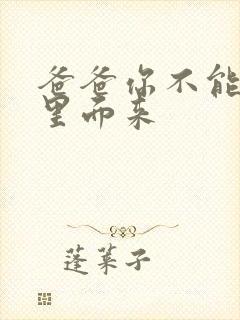 爸爸你不能
里而来
蓬莱子